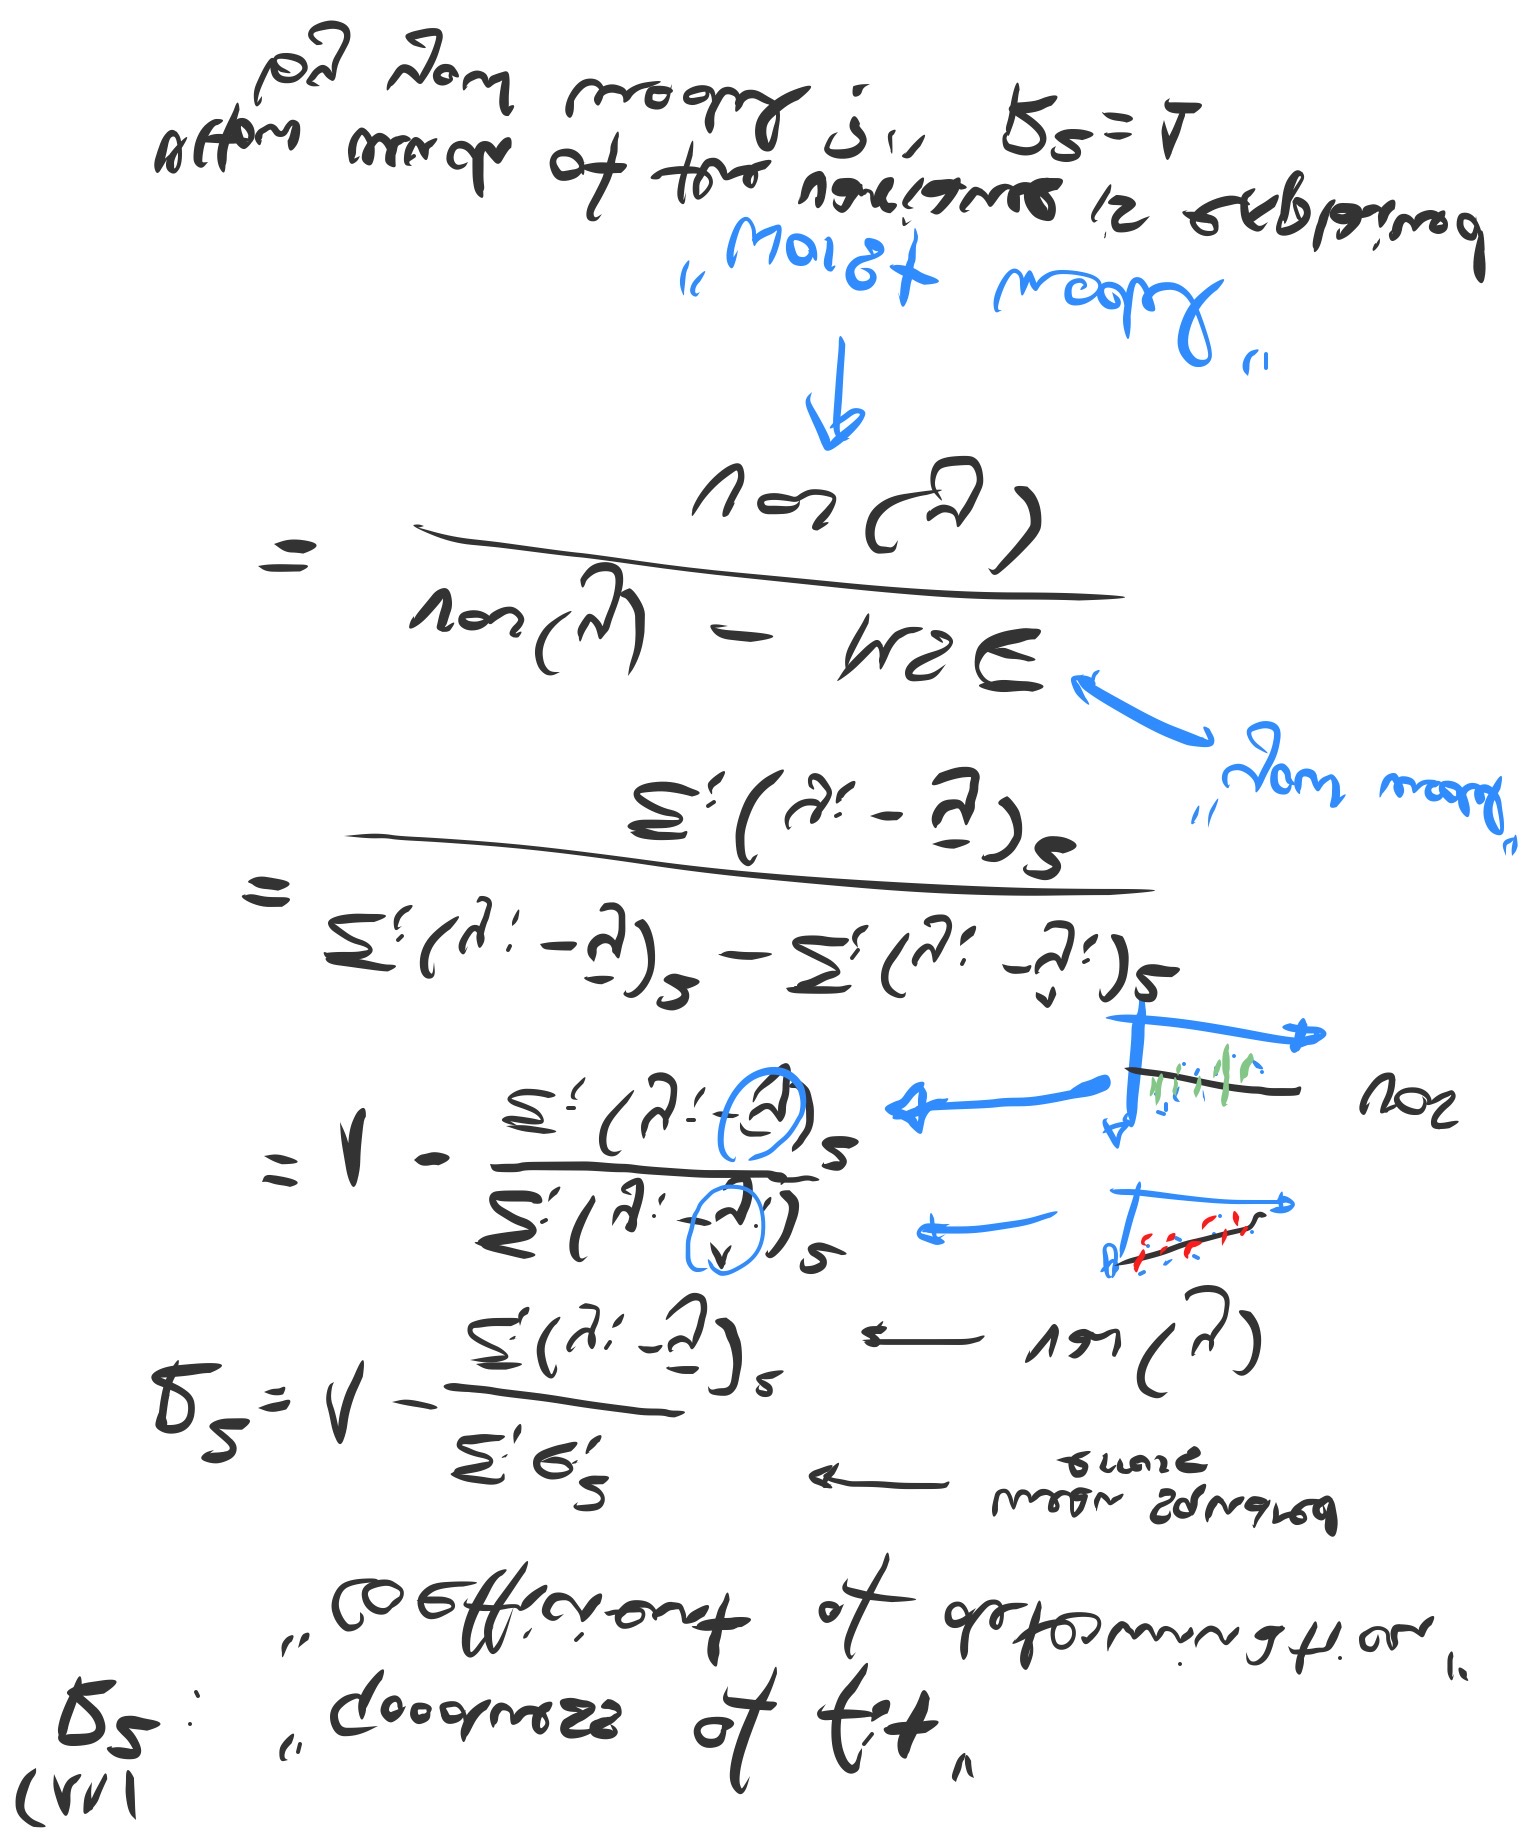 R²: "Goodness of fit"
"coefficient of determination"
R² = 1 - Σᵢ eᵢ² / Σᵢ(yᵢ - ȳ)² ← mean squared errors
← var(y)
= 1 - Σᵢ(yᵢ - ŷᵢ)² / Σᵢ(yᵢ - ȳ)² ←
← var
= Σᵢ(yᵢ - ȳ)² - Σᵢ(yᵢ - ŷᵢ)² / Σᵢ(yᵢ - ȳ)²
"your model"
= var(y) - MSE / var(y)
"worst model"
"How much of the variance is explained
by your model?" R² = 1